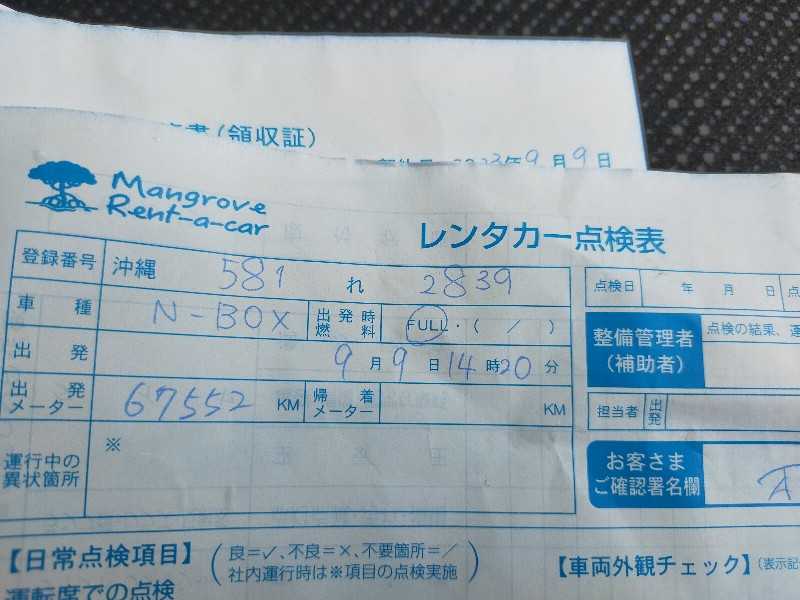 書(領収証)
年9月9日
Mangrove
Rent-a-car
レンタカー点検表
登録番号 沖縄 581 れ 2839
点検日 年 月 日 点
車種 N-BOX 出発時燃料 FULL・( / )
整備管理者(補助者) 点検の結果、運
出発 9月9日14時20分
出発メーター 67552 KM 帰着メーター KM
担当者 出発
運行中の異状箇所 ※
お客さまご確認署名欄
【日常点検項目】 (良=✓、不良=×、不要箇所=/ 社内運行時は※項目の点検実施)
【車両外観チェック】(表示記
運転席での点検